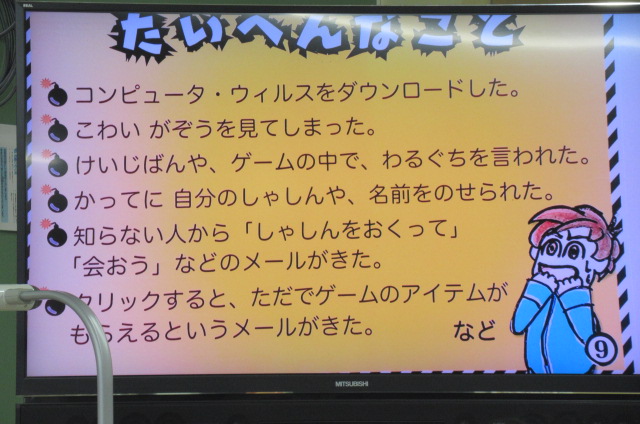 たいへんなこと
コンピュータ・ウィルスをダウンロードした。
こわい がぞうを見てしまった。
けいじばんや、ゲームの中で、わるぐちを言われた。
かってに 自分のしゃしんや、名前をのせられた。
知らない人から「しゃしんをおくって」
「会おう」などのメールがきた。
クリックすると、ただでゲームのアイテムが
もらえるというメールがきた。
など
9
MITSUBISHI
REAL